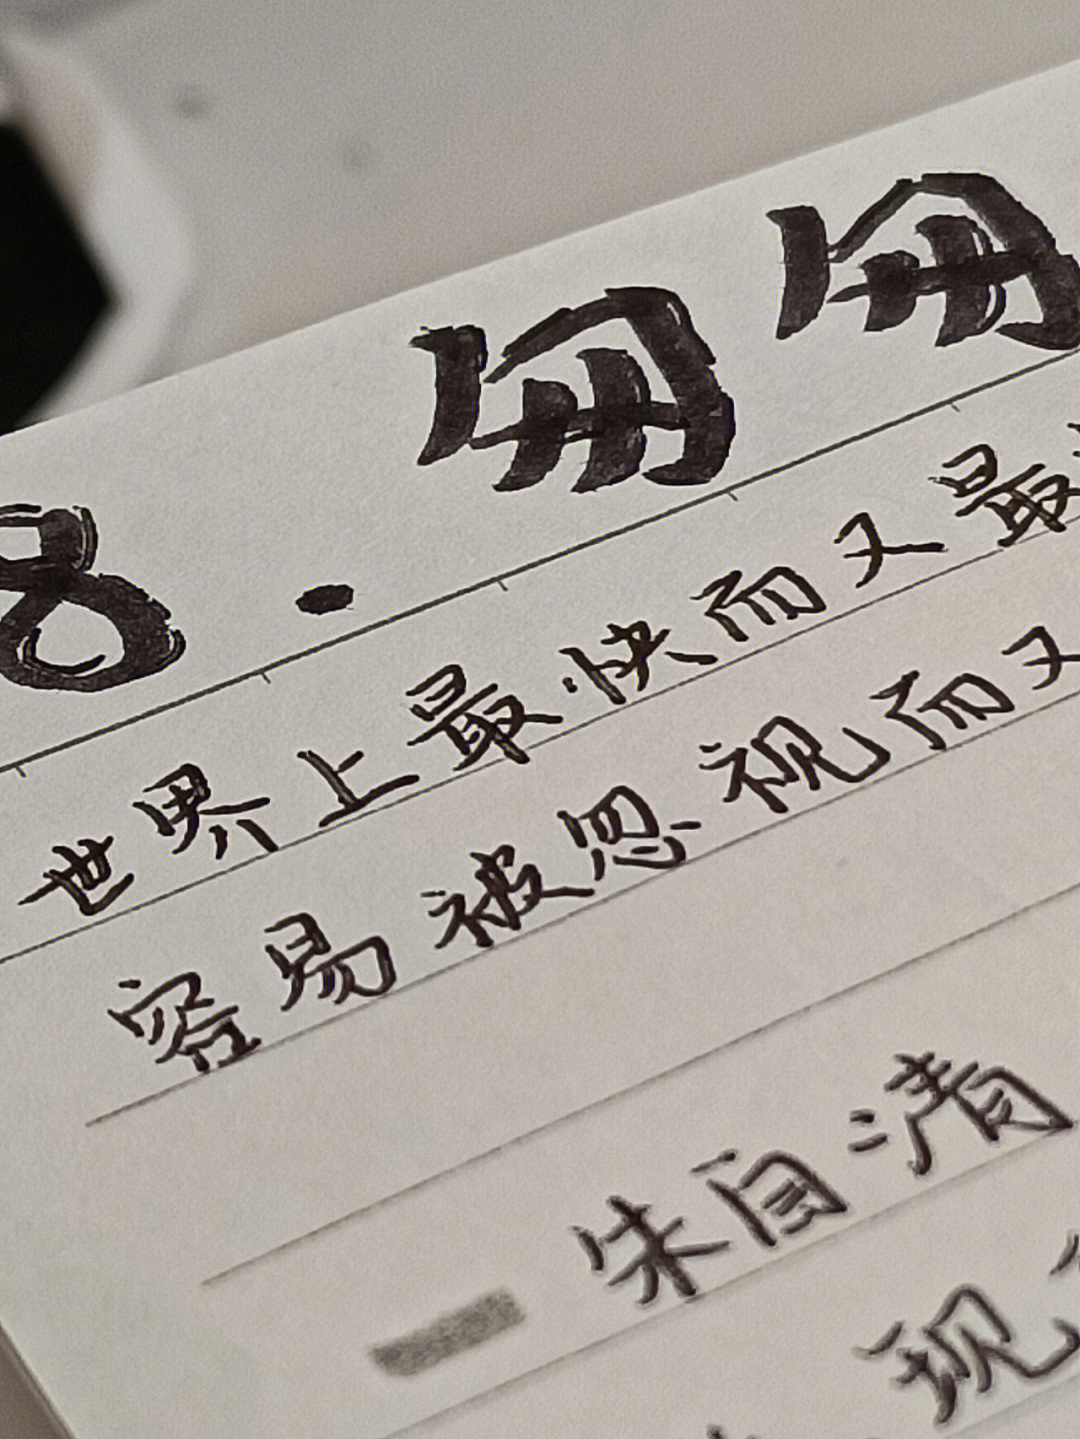 8.
世界上最快而又最
容易被忽视而又
朱自清
现